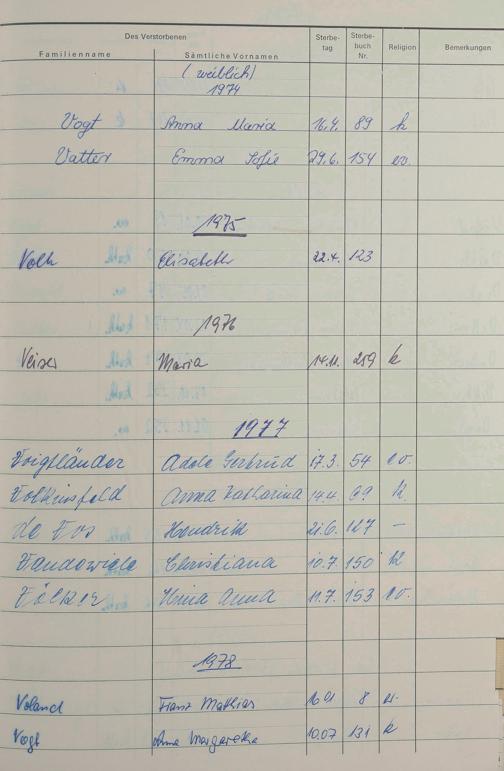 Des Verstorbenen
Familienname Sämtliche Vornamen Sterbe- tag Sterbe- buch Nr. Religion Bemerkungen
(weiblich)
1974
Vogt Anna Maria 16.4. 89 k
Vatter Emma Sofie 29.6. 154 ev.
1975
Volk Elisabeth 22.4. 123
1976
Veiser Maria 14.11. 259 k
1977
Voigtländer Adele Gertrud 17.3. 54 ev.
Volkinsfeld Anna Katharina 14.4. 99 k.
de Vos Hendrik 21.6. 127 —
Vandewiele Christiana 10.7. 150 k
Völker Anna 11.7. 153 ev.
1978
Voland Franz Mathias 8 ev.
Vogt Anna Margaretha 10.07 131 k